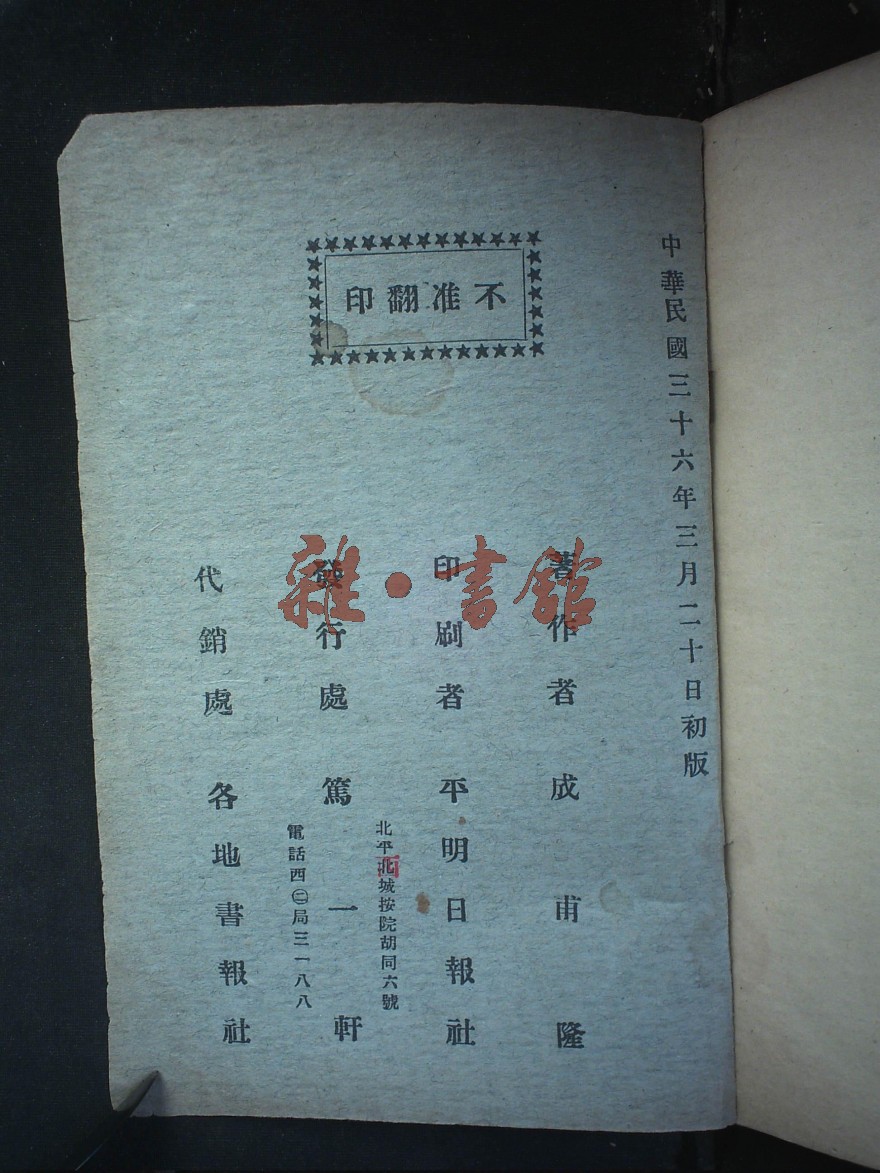 中華民國三十六年三月二十日初版
不准翻印
著作者 成甫隆
印刷者 平明日報社
北平北城按院胡同六號
發行處 篤一軒
電話西㊁局三一八八
代銷處 各地書報社
雜·書館